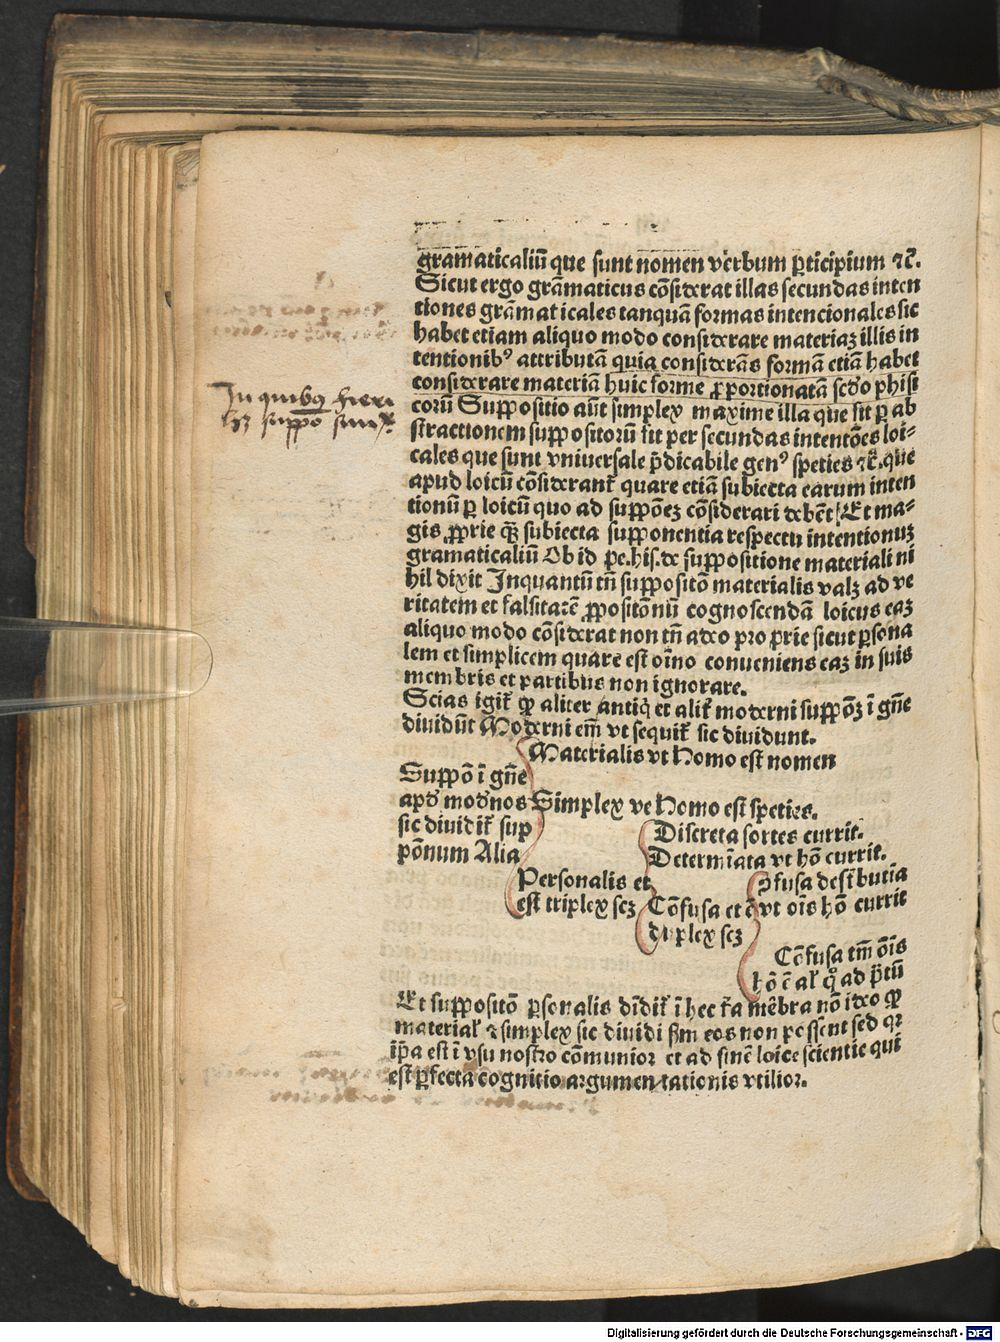 gramaticaliũ que sunt nomen verbum ꝑticipium ⁊c̃.
Sicut ergo grãmaticus cõsiderat illas secundas inten
tiones grãmat icales tanquã formas intencionales sic
habet etiam aliquo modo considerare materiaꝫ illis in
tentionibꝰ attributã quia considerãs formã etiã habet
considerare materiã huic forme ꝓportionatã scđo phisi
corũ Suppositio aũt simplex maxime illa que fit ꝑ ab
stractionem suppositorũ fit per secundas intentões loi⸗
cales que sunt vniuersale p̃dicabile genꝰ speties ⁊c̃. que
apud loicũ cõsiderant᷑ quare etiã subiecta earum inten
tionũ ꝑ loicũ quo ad suppõeꝫ cõsiderari debẽt Et ma⸗
gis ꝓprie qꝫ̃ subiecta supponentia respectu intentionuꝫ
gramaticaliũ Ob id pe. his. de suppositione materiali ni
hil dixit Inquantũ tñ suppositõ materialis valꝫ ad ve
ritatem et falsitatẽ ꝓpositõnũ cognoscendã loicus eaꝫ
aliquo modo cõsiderat non tñ adeo pro prie sicut ꝑsona
lem et simplicem quare est oĩno conueniens eaꝫ in suis
membris et partibus non ignorare.
Scias igit᷑ ꝙ aliter antiq̃ et alit᷑ moderni suppõꝫ ĩ gñe
diuidũt Moderni em̃ vt sequit᷑ sic diuidunt.
Materialis vt Homo est nomen
Suppõ ĩ gñe
apđ mođnos Simplex vt Homo est speties.
sic diuidit᷑ sup
põnum Alia
Discreta sortes currit.
Determĩata vt hõ currit.
Personalis et
est triplex scꝫ
Cõfusa et ẽ
duplex scꝫ
ꝯ̃fusa dest̃butia
vt oĩs hõ currit
Cõfusa tm̃ oĩs
hõ ẽ al᷑ q̊ ad p̃tũ
Et suppositõ ꝑsonalis dĩdit᷑ ĩ hec tr̃a mẽbra nõ ideo ꝙ
material᷑ ⁊ simplex sic diuidi ẜm eos non possent sed qꝛ
ip̃a est ĩ vsu nostro cõmunior et ad finẽ loice scientie qui
est ꝑfecta cognitio argumentationis vtilior.
In quibus
hꝫ suppõ sim